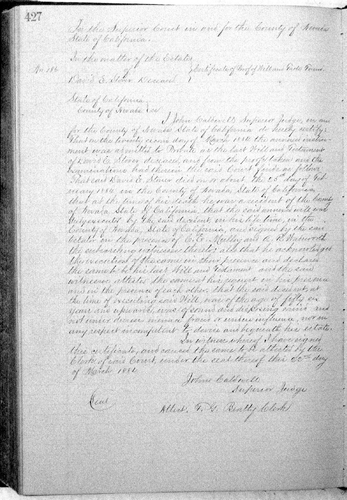 427
In the Superior Court in and for the County of Nevada
State of California.
In the matter of the Estate
No. Certificate of Proof of Will and Facts Found
David E. Deceased
State of California
County of Nevada ss
I John Caldwell Superior Judge, in and
for the County of Nevada State of California do hereby certify:
That on the day of March 1886 the annexed instru-
ment was admitted to Probate as the last Will and Testament
of David E. deceased, and from the proofs taken and the
examinations had therein the said Court finds as follows:
That said David E. died on or about the day of Feb-
ruary 188 in the County of Nevada, State of California
that at the time of his death he was a resident of the County
of Nevada State of California. That the said annexed will was
by the said decedent in his life time, in the
County of Nevada, State of California, and signed by the said
in the presence of and
the subscribing witnesses thereto; that he acknowledged
the execution of the same in their presence and declared
the same to be his last Will and Testament, and the said
witnesses attested the same at his request in his presence
and in the presence of each other. That the said decedent at
the time of executing said Will, was of the age of
years and upwards was of sound and disposing mind and
not under duress menace fraud or undue influence, nor in
any respect incompetent to devise and bequeath his estate.
In witness whereof I have signed
this certificate, and caused the same to be attested by the
Clerk of said Court, under the seal thereof this day
of March, 188
John Caldwell
Superior Judge
Seal
Attest, F. G. Beatty Clerk